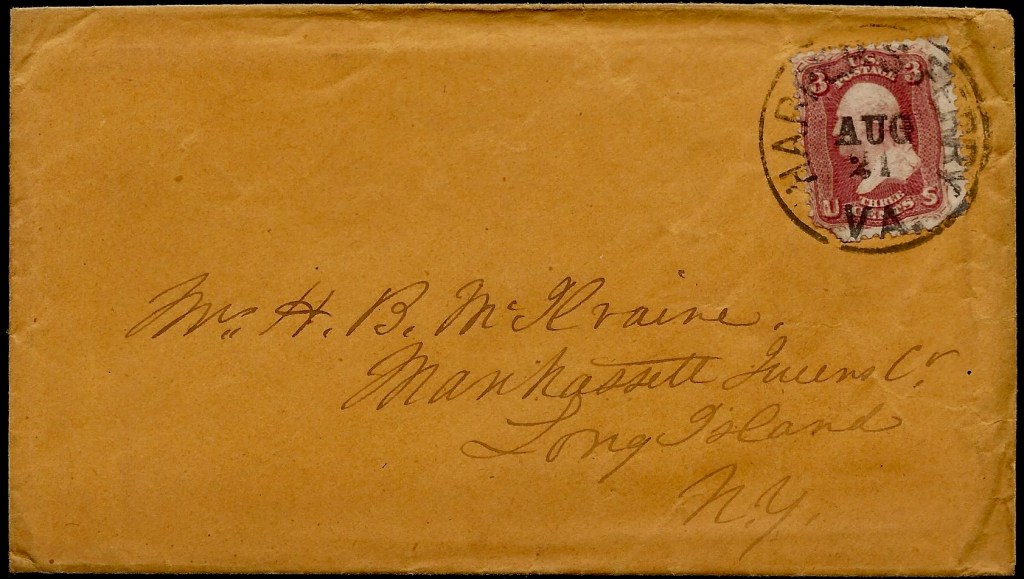 HARPERS FERRY
AUG
21
VA.
3 U.S. 3
POSTAGE
U THREE S
CENTS
Mrs. H. B. McKraine.
Manhassett Queens Co.
Long Island
N.Y.